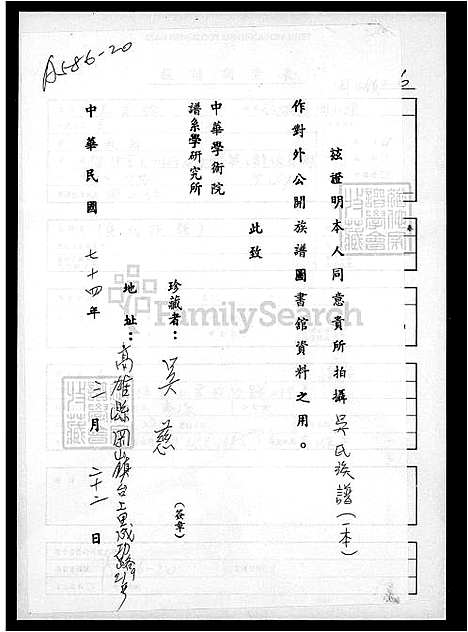 A586-20
茲證明本人同意貴所拍攝吳氏族譜(一本)
作對外公開族譜圖書館資料之用。
此致
中華學術院
譜系學研究所
珍藏者:吳慈(簽章)
地址:高雄縣岡山鎮台上里成功路
中華民國七十四年三月二十二日
FamilySearch